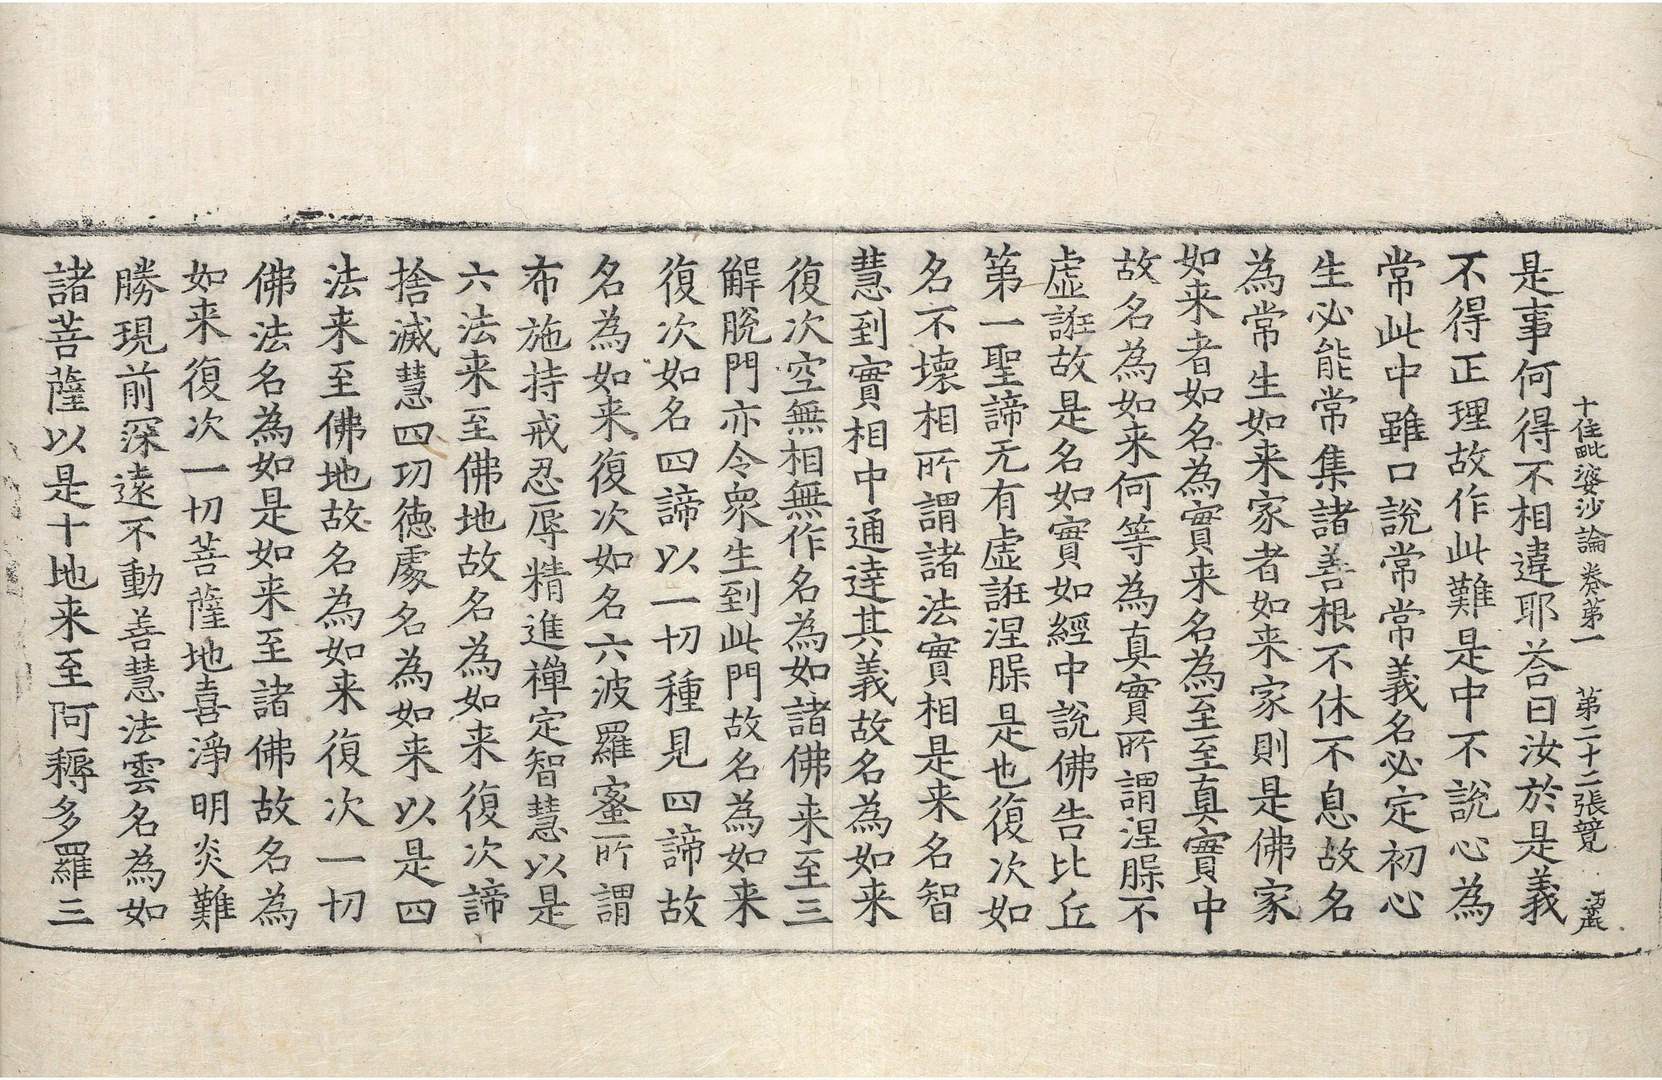 十住毗婆沙論卷第一 第二十二張 競
是事何得不相違耶荅曰汝於是義
不得正理故作此難是中不說心為
常此中雖口說常常義名必定初心
生必能常集諸善根不休不息故名
為常生如来家者如来家則是佛家
如来者如名為實来名為至至真實中
故名為如来何等為真實所謂涅槃不
虛誑故是名如實如經中說佛告比丘
第一聖諦无有虛誑涅槃是也復次如
名不壞相所謂諸法實相是来名智
慧到實相中通達其義故名為如来
復次空無相無作名為如諸佛来至三
解脫門亦令衆生到此門故名為如来
復次如名四諦以一切種見四諦故
名為如来復次如名六波羅蜜所謂
布施持戒忍辱精進禪定智慧以是
六法来至佛地故名為如来復次諦
捨滅慧四功德處名為如来以是四
法来至佛地故名為如来復次一切
佛法名為如是如来至諸佛故名為
如来復次一切菩薩地喜淨明炎難
勝現前深遠不動善慧法雲名為如
諸菩薩以是十地来至阿耨多羅三